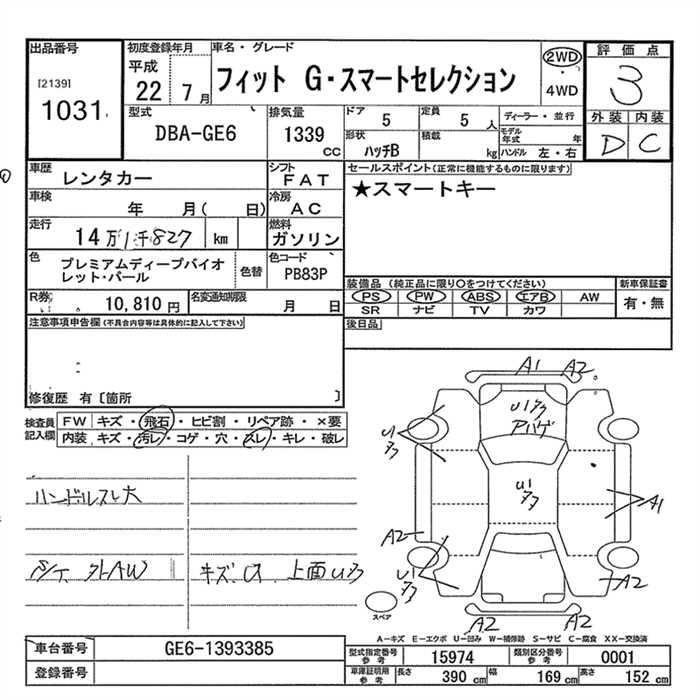 出品番号
[2139]
1031
初度登録年月
平成
22 7月
車名・グレード
フィット G・スマートセレクション
2WD
・
4WD
評価点
3
外装 内装
D C
型式
DBA-GE6
排気量
1339
CC
ドア
5
定員
5 人
ディーラー・並行
形状
ハッチB
積載
kg
モデル年式 年
ハンドル 左・右
車歴
レンタカー
シフト
FAT
車検
年 月( 日)
冷房
AC
走行
14万1千827 km
燃料
ガソリン
色
プレミアムディープバイオ
レット・パール
色替
色コード
PB83P
R券
10,810 円
名変通知期限
月 日
セールスポイント(正常に機能するものに限ります)
★スマートキー
装備品(純正品に限り○をつけてください)
PS PW ABS エアB AW
SR ナビ TV カワ
新車保証書
有・無
後日品
注意事項申告欄(不具合内容等は具体的に記入して下さい)
修復歴 有〔箇所 〕
検査員
記入欄
FW キズ・飛石・ヒビ割・リペア跡・×要
内装 キズ・汚レ・コゲ・穴・スレ・キレ・破レ
ハンドルスレ大
外AW
上面
A1 A2
U1
U1
U1
A1
A2
U1
A2
A2 A2
スペア
A−キズ E−エクボ U−凹み W−補修跡 S−サビ C−腐食 XX−交換済
車台番号 GE6-1393385
登録番号
型式指定番号
参考
15974
類別区分番号
参考
0001
車庫証明用
参考
長さ 390 cm 幅 169 cm 高さ 152 cm